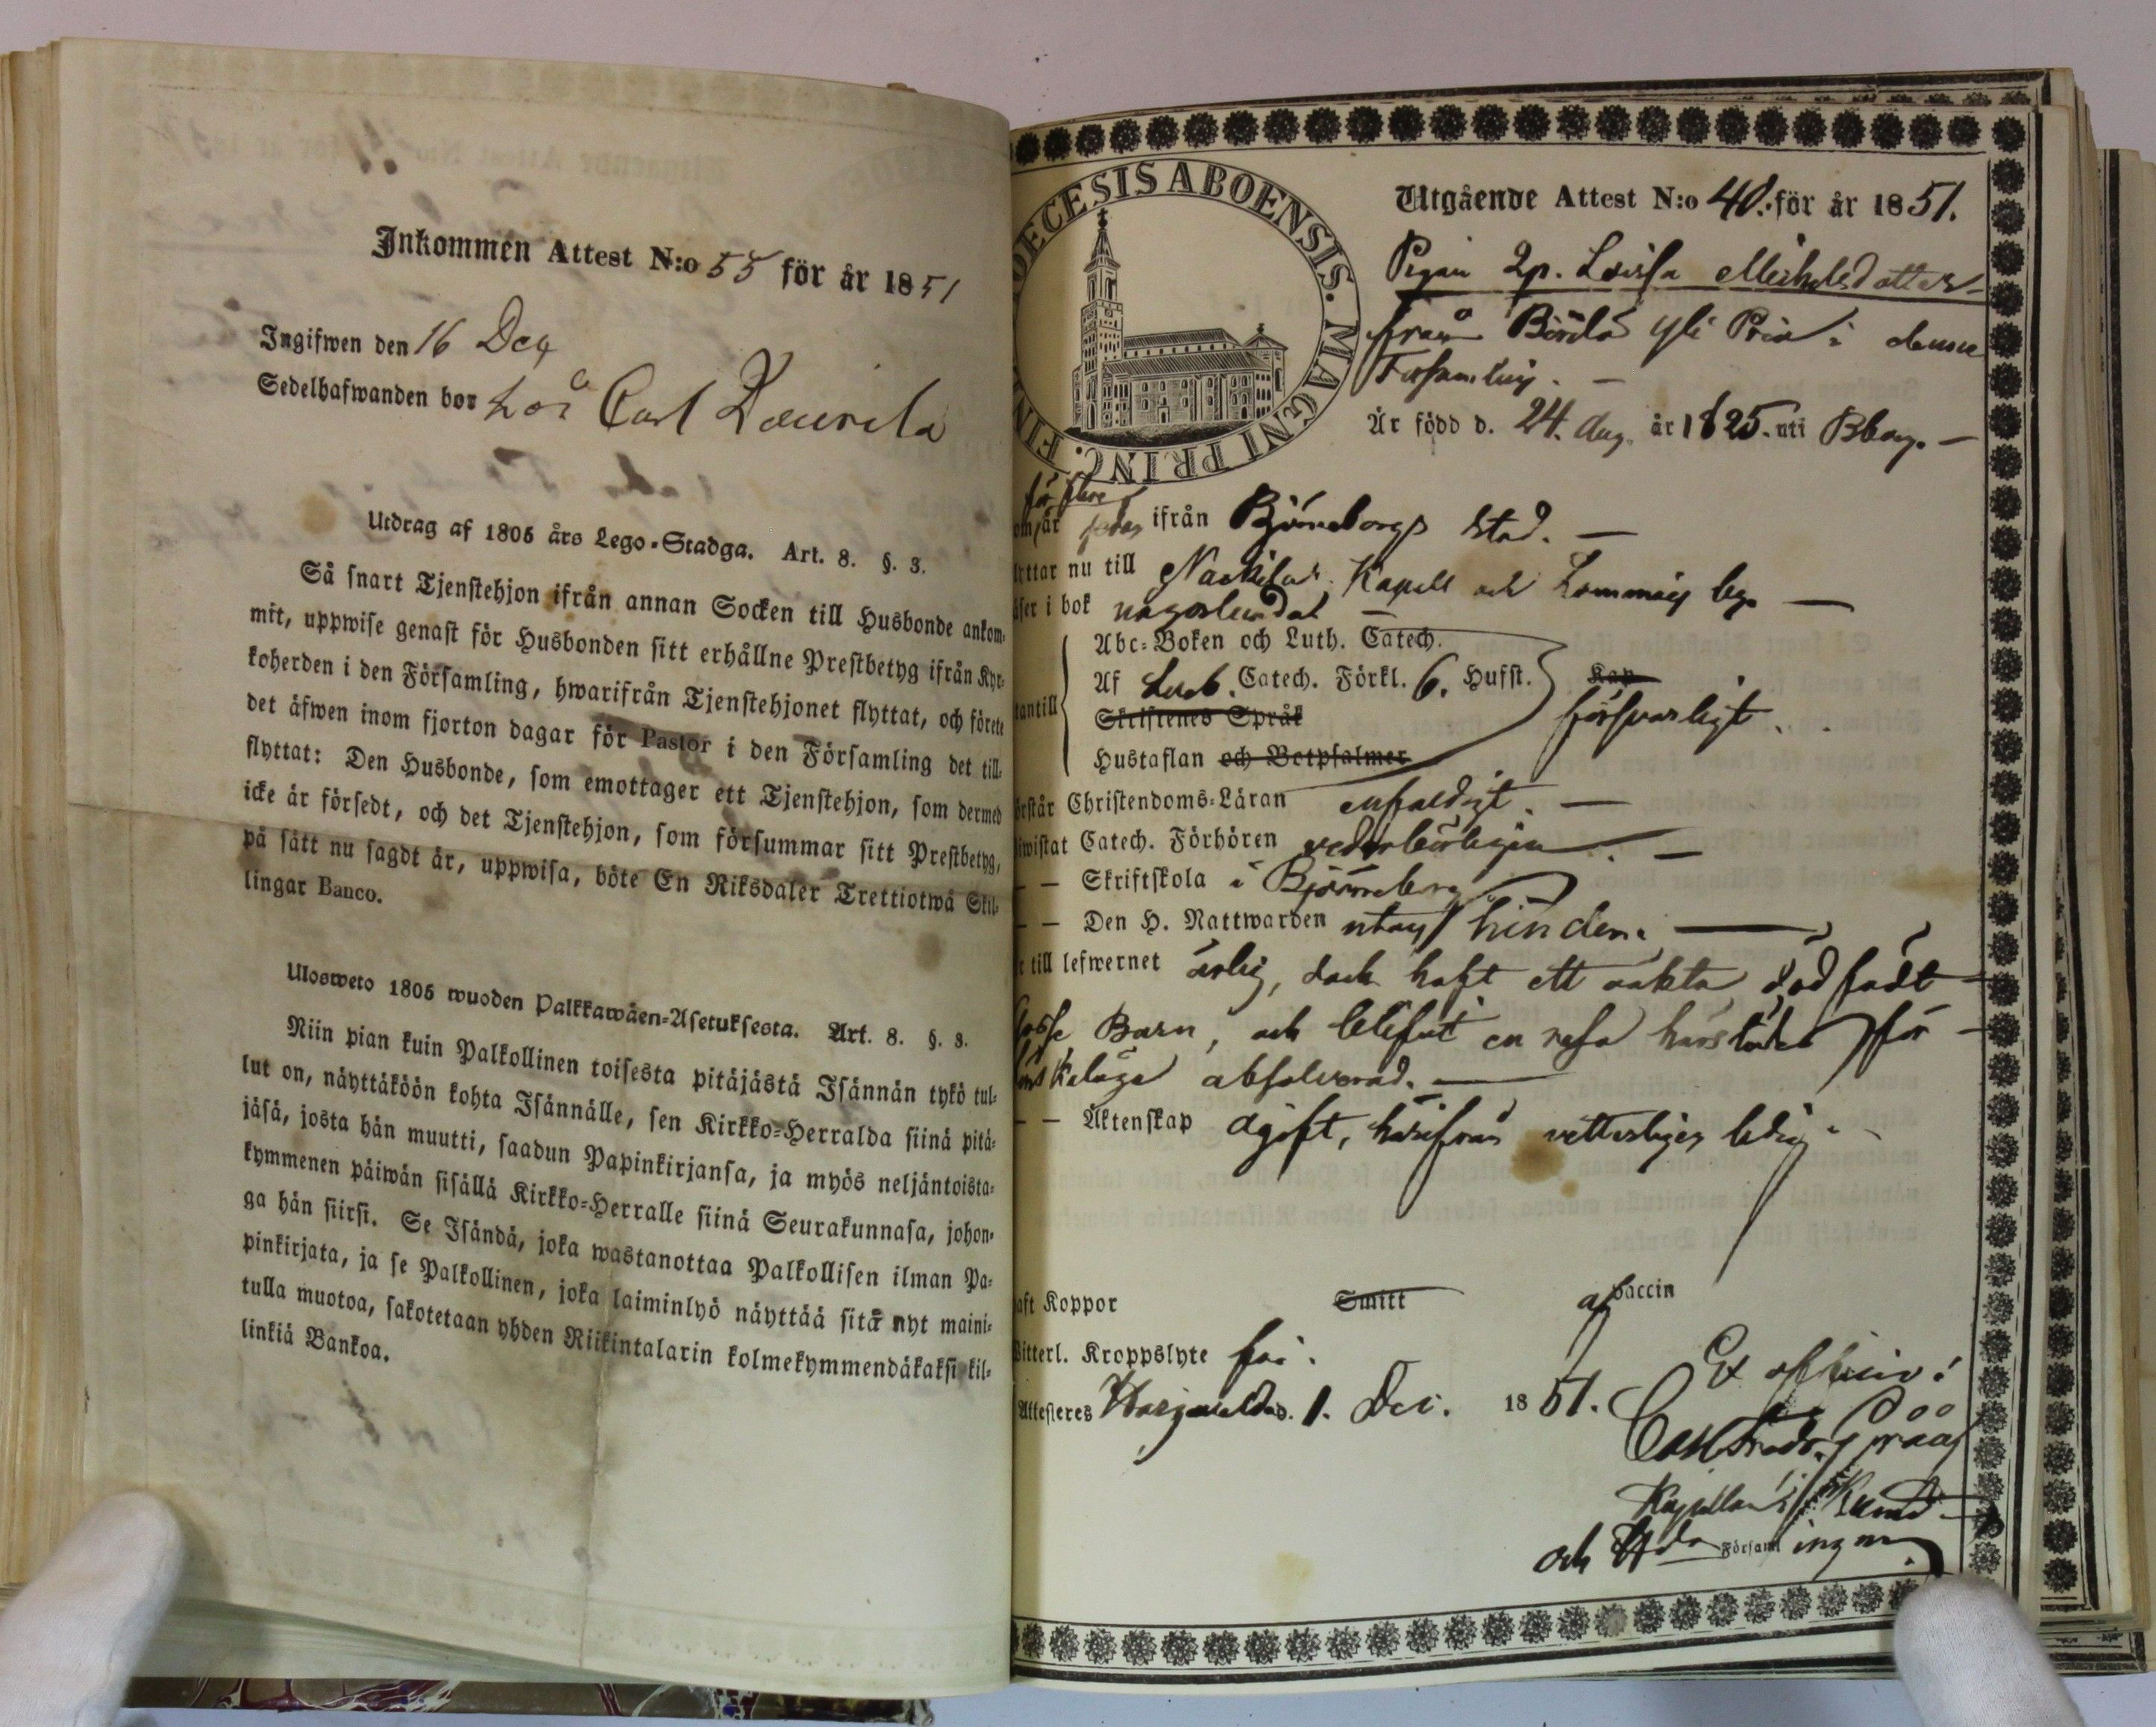 Inkommen Attest N:o 55 för år 1851
Ingifwen den 16 Dec
Sedelhafwanden bor hos Carl Laurila
Utdrag af 1805 års Lego-Stadga. Art. 8. §. 3.
Så snart Tjenstehjon ifrån annan Socken till Husbonde ankom-
mit, uppwise genast för Husbonden sitt erhållne Prestbetyg ifrån Kyr-
koherden i den Församling, hwarifrån Tjenstehjonet flyttat, och förete
det äfwen inom fjorton dagar för Pastor i den Församling det till-
flyttat: Den Husbonde, som emottager ett Tjenstehjon, som dermed
icke är försedt, och det Tjenstehjon, som försummar sitt Prestbetyg,
på sätt nu sagdt är, uppwisa, böte En Riksdaler Trettiotwå Skil-
lingar Banco.
Ulosweto 1805 wuoden Palkkawäen-Asetuksesta. Art. 8. §. 3.
Niin pian kuin Palkollinen toisesta pitäjästä Isännän tykö tul-
lut on, näyttäköön kohta Isännälle, sen Kirkko-Herralda siinä pitä-
jäsä, josta hän muutti, saadun Papinkirjansa, ja myös neljäntoista-
kymmenen päiwän sisällä Kirkko-Herralle siinä Seurakunnasa, johon-
ga hän siirsi. Se Isändä, joka wastanottaa Palkollisen ilman Pa-
pinkirjata, ja se Palkollinen, joka laiminlyö näyttää sitä nyt maini-
tulla muotoa, sakotetaan yhden Riikintalarin kolmekymmendäkaksi kil-
linkiä Bankoa.
OECESIS ABOENSIS. MAGNI PRINC. FIN
Utgående Attest N:o 40. för år 1851.
Pigan Lovisa Michelsdotter
från Yli i denne
Församling.
Är född d. 24. Aug. år 1825. uti Bborg.
för flere
om är ifrån Björneborgs stad.
yttar nu till Nackila Kapell och by
äser i bok någorlunda
Abc-Boken och Luth. Catech.
Af Catech. Förkl. 6. Hufst. Kap
tantill Skriftenes Språk försvarligt.
Hustaflan och Botpsalmer
örstår Christendoms-Läran enfaldigt.
iwistat Catech. Förhören vederbörligen.
Skriftskola i Björneborg
Den H. Nattwarden utan hinder.
r till lefwernet ärlig, dock haft ett oäkta dödfödt
Barn, och blifvit en resa härstädes för
absolverad.
Äktenskap ogift, härifrån vetterligen ledig.
aft Koppor Smitt af Vaccin
Vitterl. Kroppslyte fri.
Attesteres Harjavalda d. 1. Dec. 1851. Ex officio:
Carl Fredr. Grååf
Kapellan i
och Församlingar